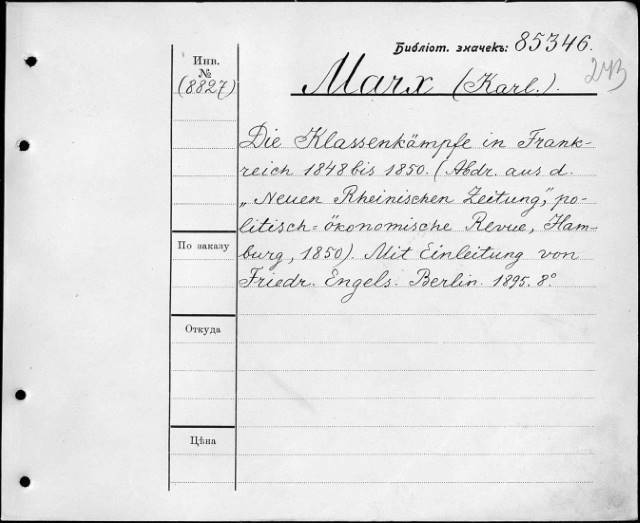 Библіот. значекъ: 85346.
Инв.
№
(8827)
Marx (Karl.).
Die Klassenkämpfe in Frank-
reich 1848 bis 1850. (Abdr. aus d.
„Neuen Rheinischen Zeitung", po-
litisch-ökonomische Revue, Ham-
burg, 1850). Mit Einleitung von
Friedr. Engels. Berlin. 1895. 8°.
По заказу
Откуда
Цѣна